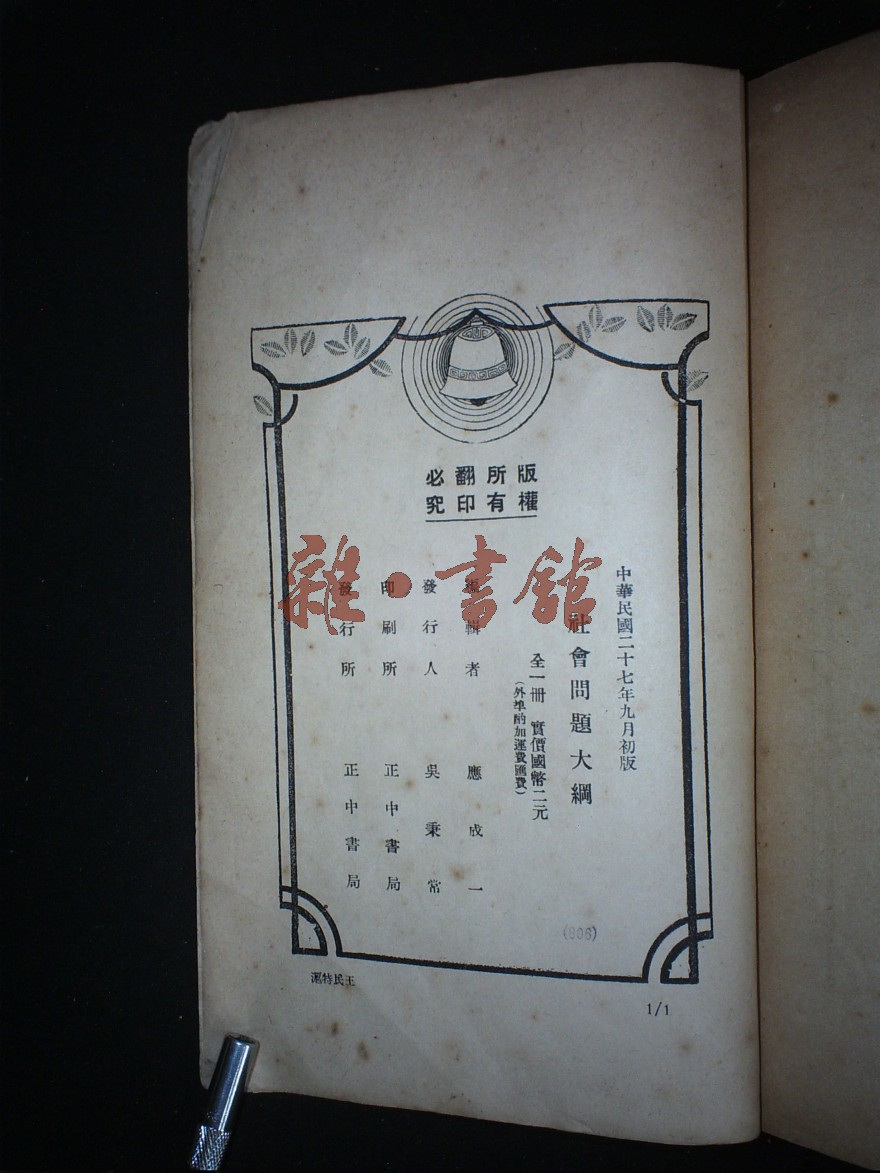 版權所有
翻印必究
中華民國二十七年九月初版
社會問題大綱
全一冊 實價國幣二元
(外埠酌加運費匯費)
編輯者 應成一
發行人 吳秉常
印刷所 正中書局
發行所 正中書局
(806)
王民特滬
1/1
雜·書館